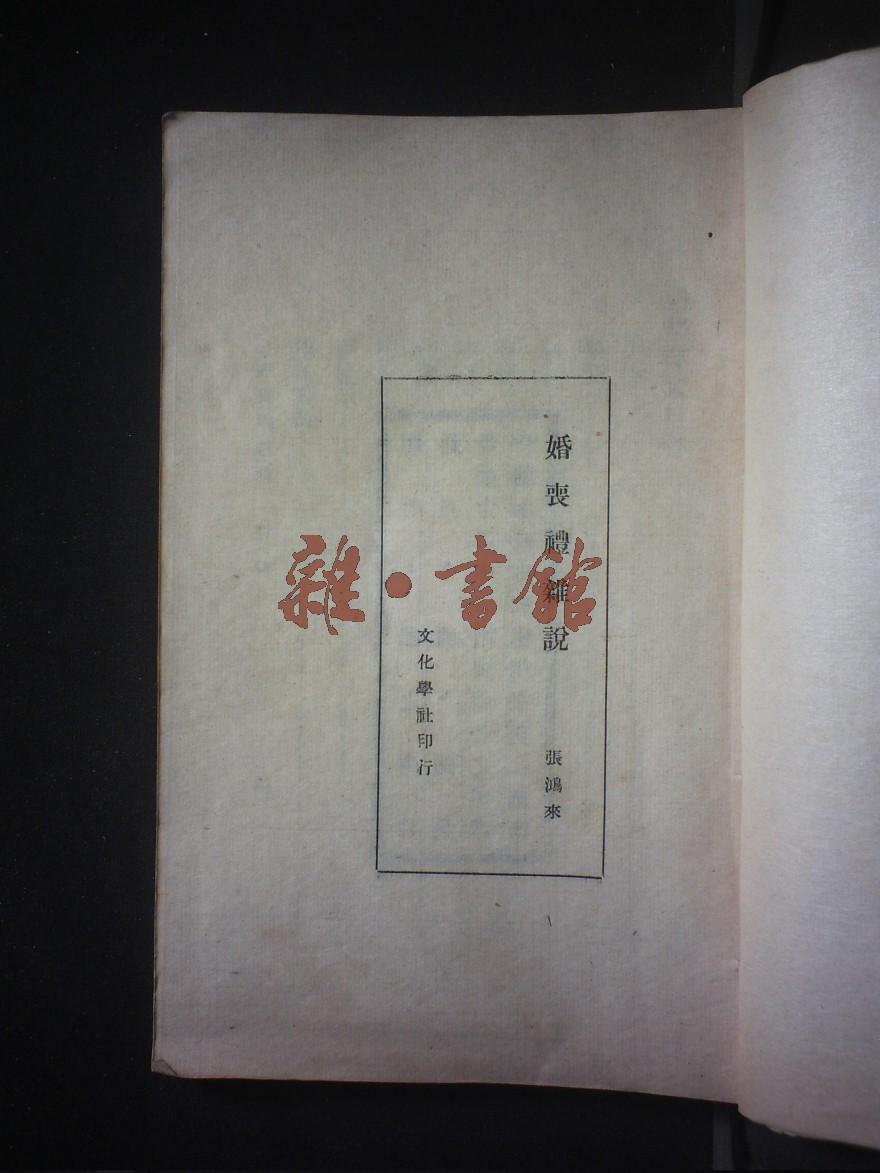 婚喪禮雜說
張鴻來
文化學社印行
雜·書館